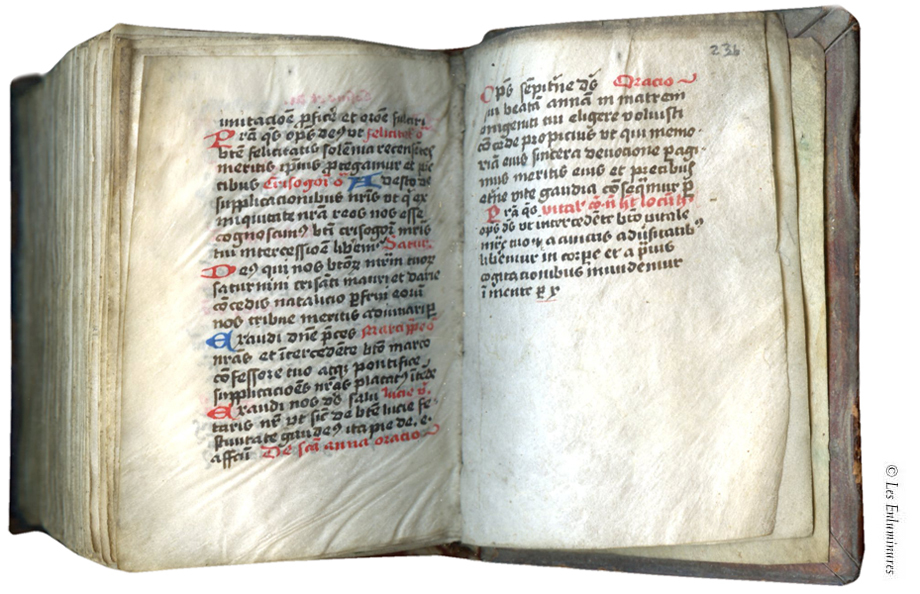 imitacioē ꝑfice et oroē fulciri
Pr̄a qs̄ op̄s deꝯ vt felicitat̄ o᷑
btē felicitatis solēnia recensētes
meritis ip̄iuis ꝓtegamur et p̄e
cibus Crisogoī o᷑ Adesto dē
supplicacionibus nr̄is vt q̇ ex
iniquitate nr̄a reos nos esse
cognoscimꝰ btī crisogoī mr̄is
tui intercessioē libem̄ Satur̄
Deꝰ qui nos btōꝝ mr̄m tuoꝝ
saturnini crisāti mauri et darie
cōcedis natalicio ꝑfrui eoꝝ
nos tribue meritis adiuuari ꝑ
Exaudi dn̄e p̄ces Marci ꝓ o᷑
nr̄as et ītercedēte btō marco
cōfessore tuo atqꝫ pontifice
supplicacioēs nr̄as placatꝰ ītēde
Exaudi nos dꝰ salu lucie o᷑
taris nr̄ vt sic̄ de btē lucie fe
stiuitate gaudeꝰ ita pie de. e.
affcū De scā anna oracio
236
Op̄s sēpit̄ne dꝰ Oracio
qui beatā annā in matrem
vnigeniti tui eligere voluisti
cōcede propicius vt qui memo
riā eius sincera deuocione pagi
mus meritis eius et precibus
et̄ne vite gaudia cōseq̄mur ꝑ
Pr̄a qs̄ vital
op̄s dꝰ vt intercedēte btō vitale
mr̄e tuo a cunctis aduʼsitatibꝰ
liberiur in corpe et a p̄uis
cogitacionibus mundemur
ī mente ꝑ x
© Les Enluminures